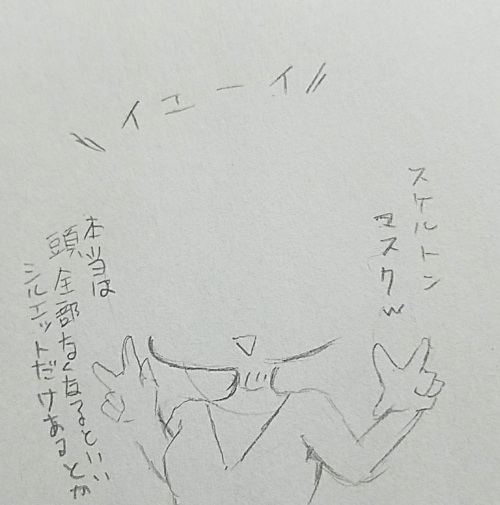 イエーイ
スケルトン
マスクw
本当は
頭全部なくなるといい
シルエットだけあるとか